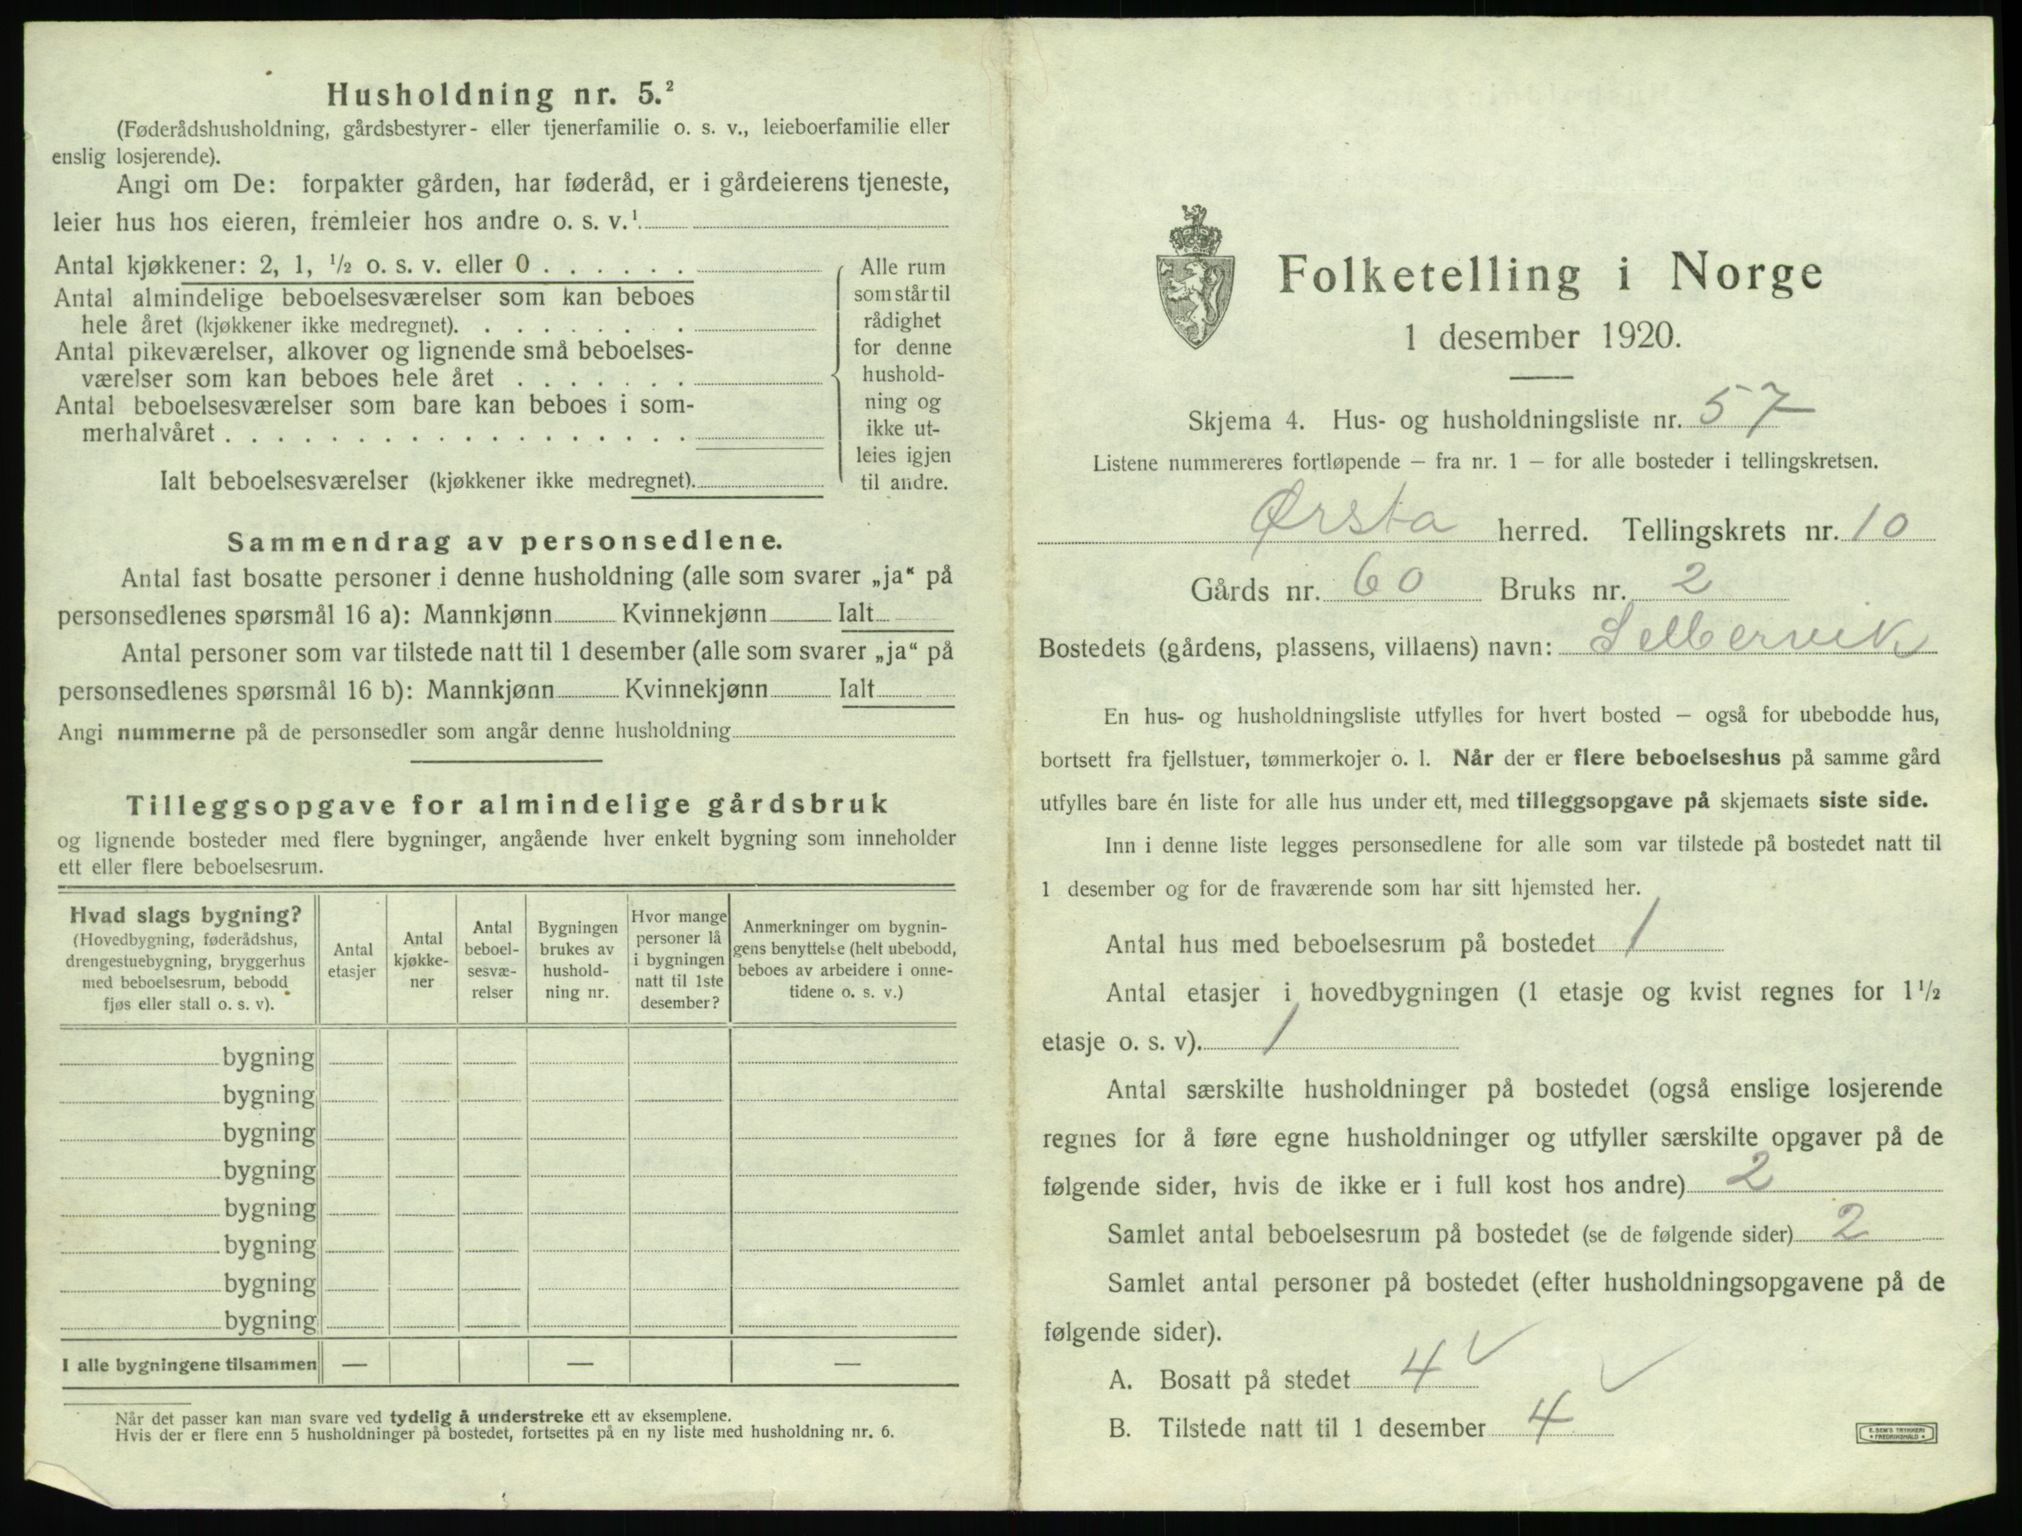 Husholdning nr. 5.²
(Føderådshusholdning, gårdsbestyrer- eller tjenerfamilie o. s. v., leieboerfamilie eller
enslig losjerende).
Angi om De: forpakter gården, har føderåd, er i gårdeierens tjeneste,
leier hus hos eieren, fremleier hos andre o. s. v.¹
Antal kjøkkener: 2, 1, ½ o. s. v. eller 0 . . . . . .
Antal almindelige beboelsesværelser som kan beboes
hele året (kjøkkener ikke medregnet). . . . . . . . .
Antal pikeværelser, alkover og lignende små beboelses-
værelser som kan beboes hele året . . . . . . .
Antal beboelsesværelser som bare kan beboes i som-
merhalvåret . . . . . . . . . . . . . . . . . .
Ialt beboelsesværelser (kjøkkener ikke medregnet).
Alle rum
som står til
rådighet
for denne
hushold-
ning og
ikke ut-
leies igjen
til andre.
Sammendrag av personsedlene.
Antal fast bosatte personer i denne husholdning (alle som svarer „ja“ på
personsedlenes spørsmål 16 a): Mannkjønn Kvinnekjønn Ialt
Antal personer som var tilstede natt til 1 desember (alle som svarer „ja“ på
personsedlenes spørsmål 16 b): Mannkjønn Kvinnekjønn Ialt
Angi nummerne på de personsedler som angår denne husholdning
Tilleggsopgave for almindelige gårdsbruk
og lignende bosteder med flere bygninger, angående hver enkelt bygning som inneholder
ett eller flere beboelsesrum.
Hvad slags bygning?
(Hovedbygning, føderådshus,
drengestuebygning, bryggerhus
med beboelsesrum, bebodd
fjøs eller stall o. s. v).
Antal
etasjer
Antal
kjøkke-
ner
Antal
beboel-
sesvæ-
relser
Bygningen
brukes av
hushold-
ning nr.
Hvor mange
personer lå
i bygningen
natt til 1ste
desember?
Anmerkninger om bygnin-
gens benyttelse (helt ubebodd,
beboes av arbeidere i onne-
tidene o. s. v.)
bygning
bygning
bygning
bygning
bygning
bygning
bygning
bygning
I alle bygningene tilsammen — — —
Når det passer kan man svare ved tydelig å understreke ett av eksemplene.
Hvis der er flere enn 5 husholdninger på bostedet, fortsettes på en ny liste med husholdning nr. 6.
Folketelling i Norge
1 desember 1920.
Skjema 4. Hus- og husholdningsliste nr. 57
Listene nummereres fortløpende — fra nr. 1 — for alle bosteder i tellingskretsen.
Ørsta herred. Tellingskrets nr. 10
Gårds nr. 60 Bruks nr. 2
Bostedets (gårdens, plassens, villaens) navn: Selbervik
En hus- og husholdningsliste utfylles for hvert bosted — også for ubebodde hus,
bortsett fra fjellstuer, tømmerkojer o. l. Når der er flere beboelseshus på samme gård
utfylles bare én liste for alle hus under ett, med tilleggsopgave på skjemaets siste side.
Inn i denne liste legges personsedlene for alle som var tilstede på bostedet natt til
1 desember og for de fraværende som har sitt hjemsted her.
Antal hus med beboelsesrum på bostedet 1
Antal etasjer i hovedbygningen (1 etasje og kvist regnes for 1½
etasje o. s. v). 1
Antal særskilte husholdninger på bostedet (også enslige losjerende
regnes for å føre egne husholdninger og utfyller særskilte opgaver på de
følgende sider, hvis de ikke er i full kost hos andre) 2
Samlet antal beboelsesrum på bostedet (se de følgende sider) 2
Samlet antal personer på bostedet (efter husholdningsopgavene på de
følgende sider).
A. Bosatt på stedet 4 ✓
B. Tilstede natt til 1 desember 4 ✓
E. SEM'S TRYKKERI
• FREDRIKSHALD •